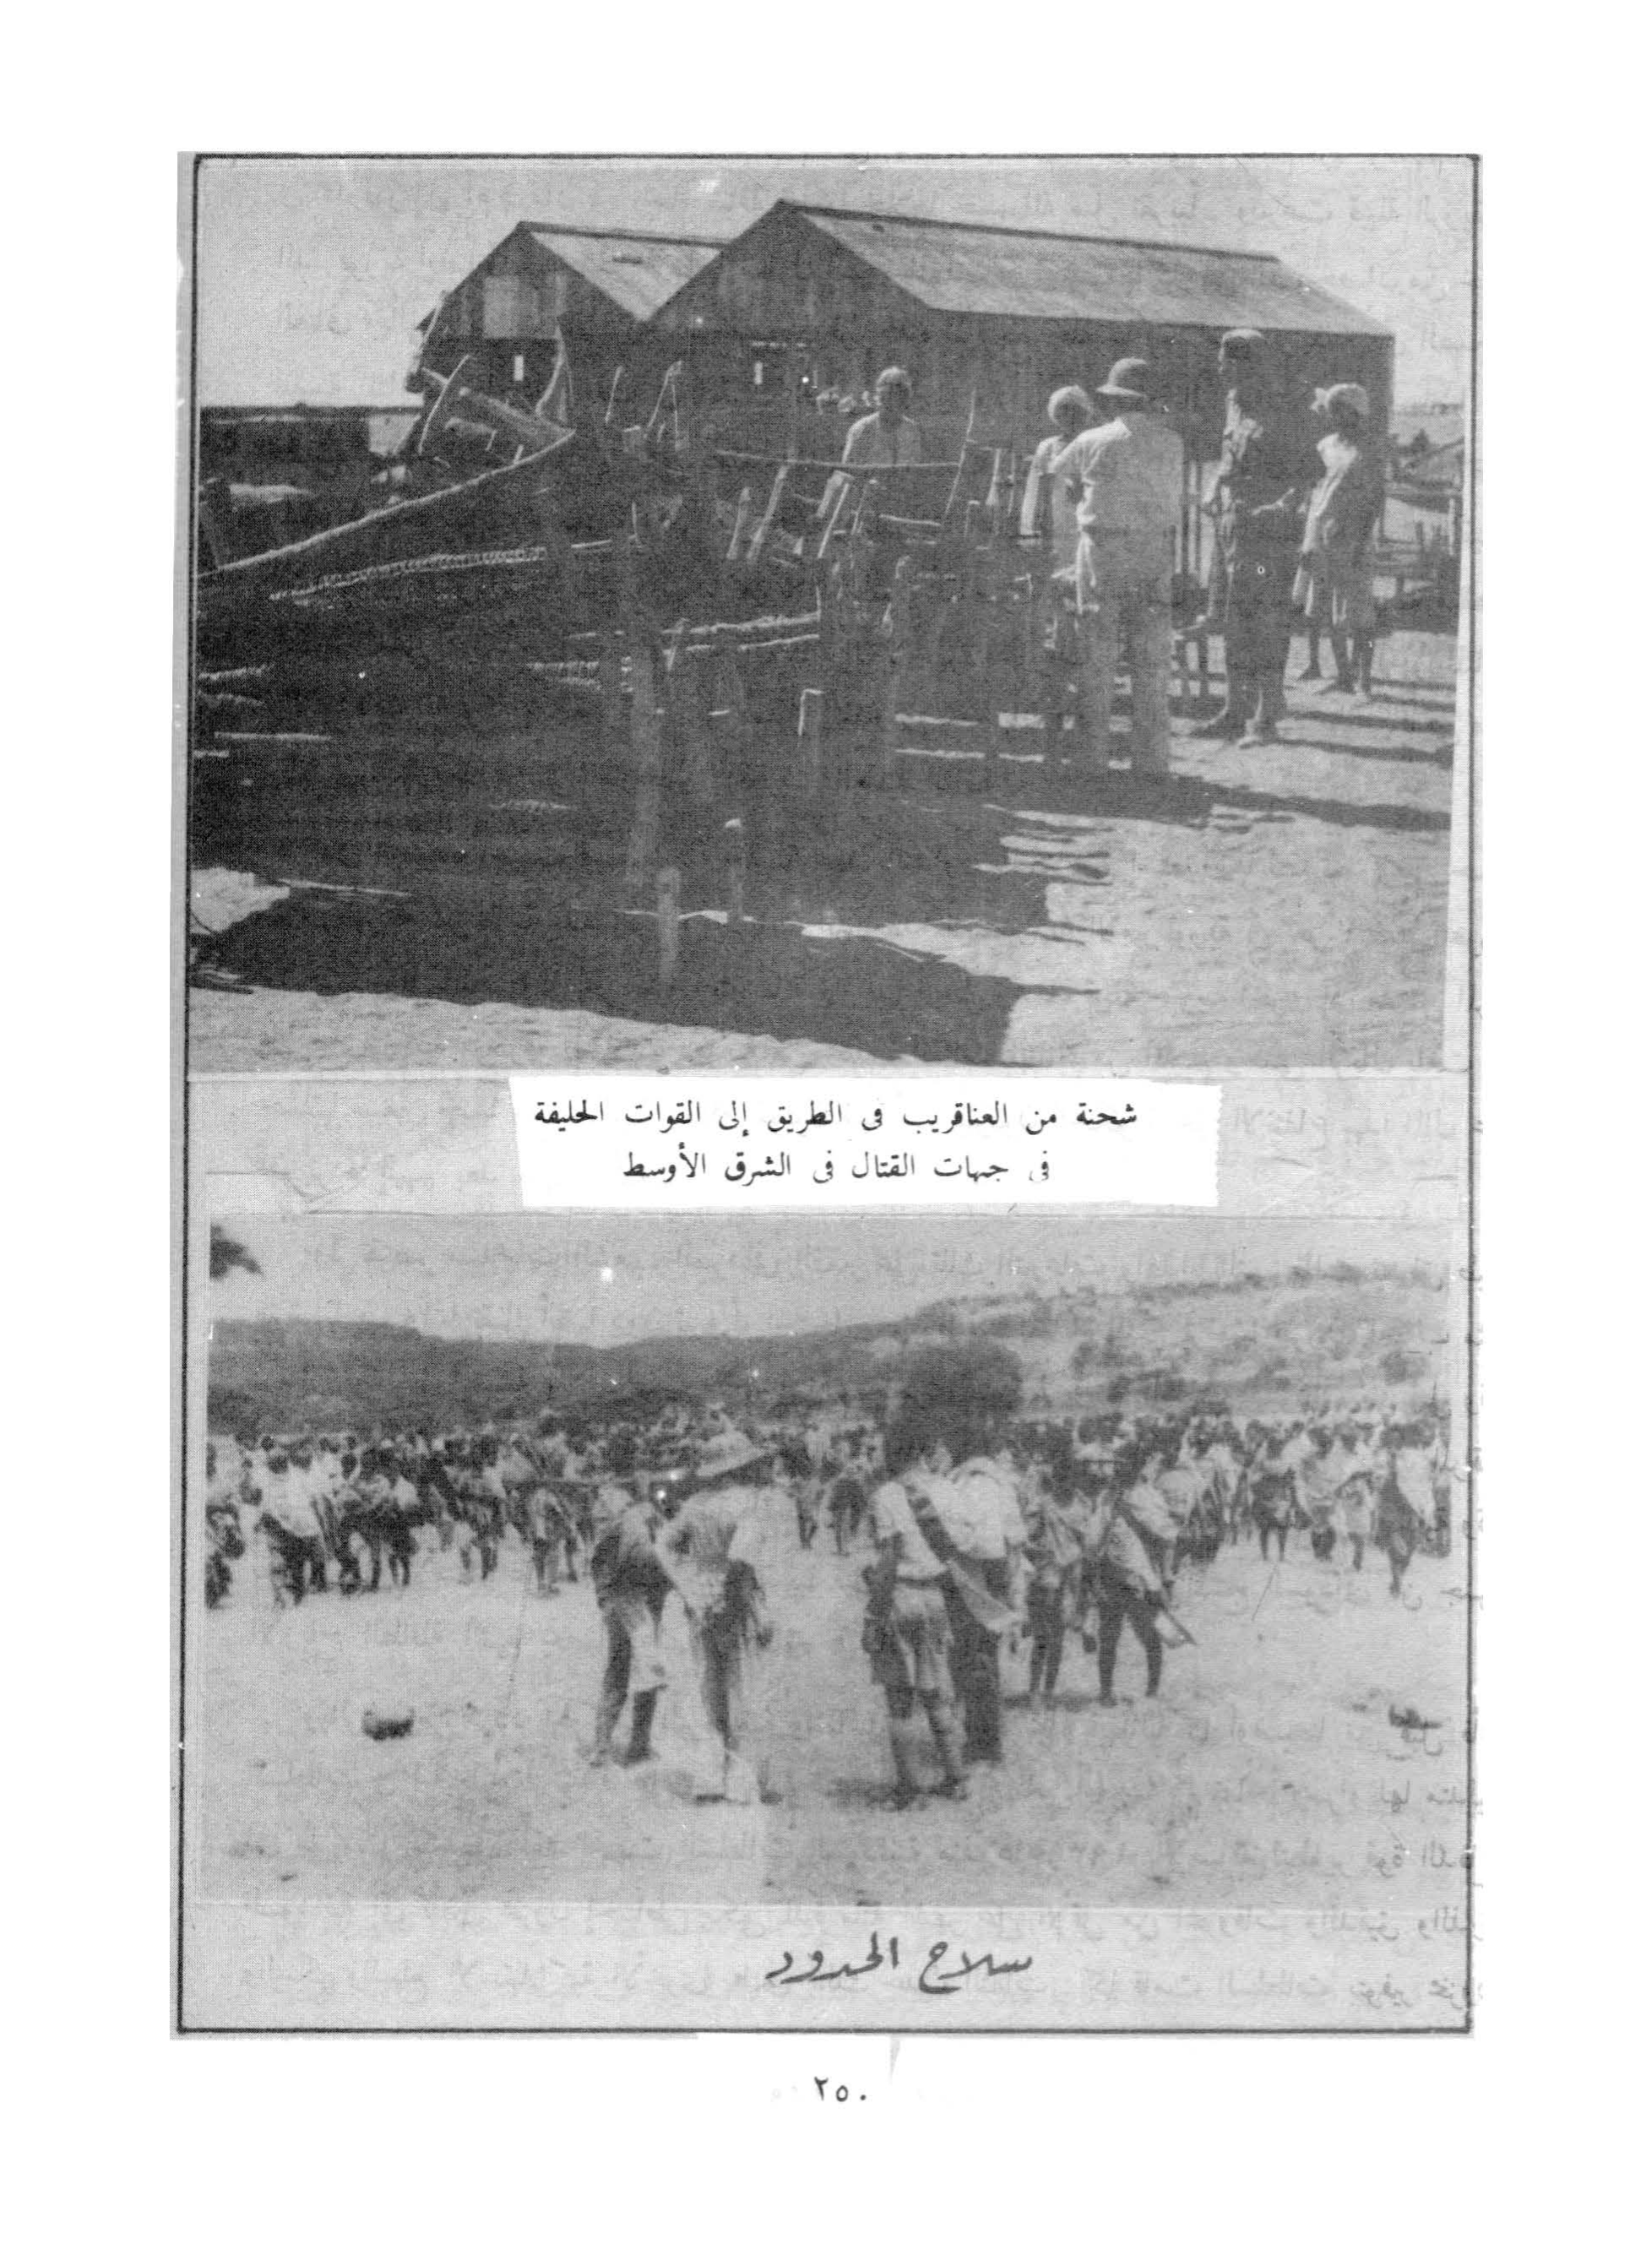 شحنة من العناقريب فى الطريق إلى القوات الحليفة
فى جبهات القتال فى الشرق الأوسط
سلاح الحدود
٢٥٠